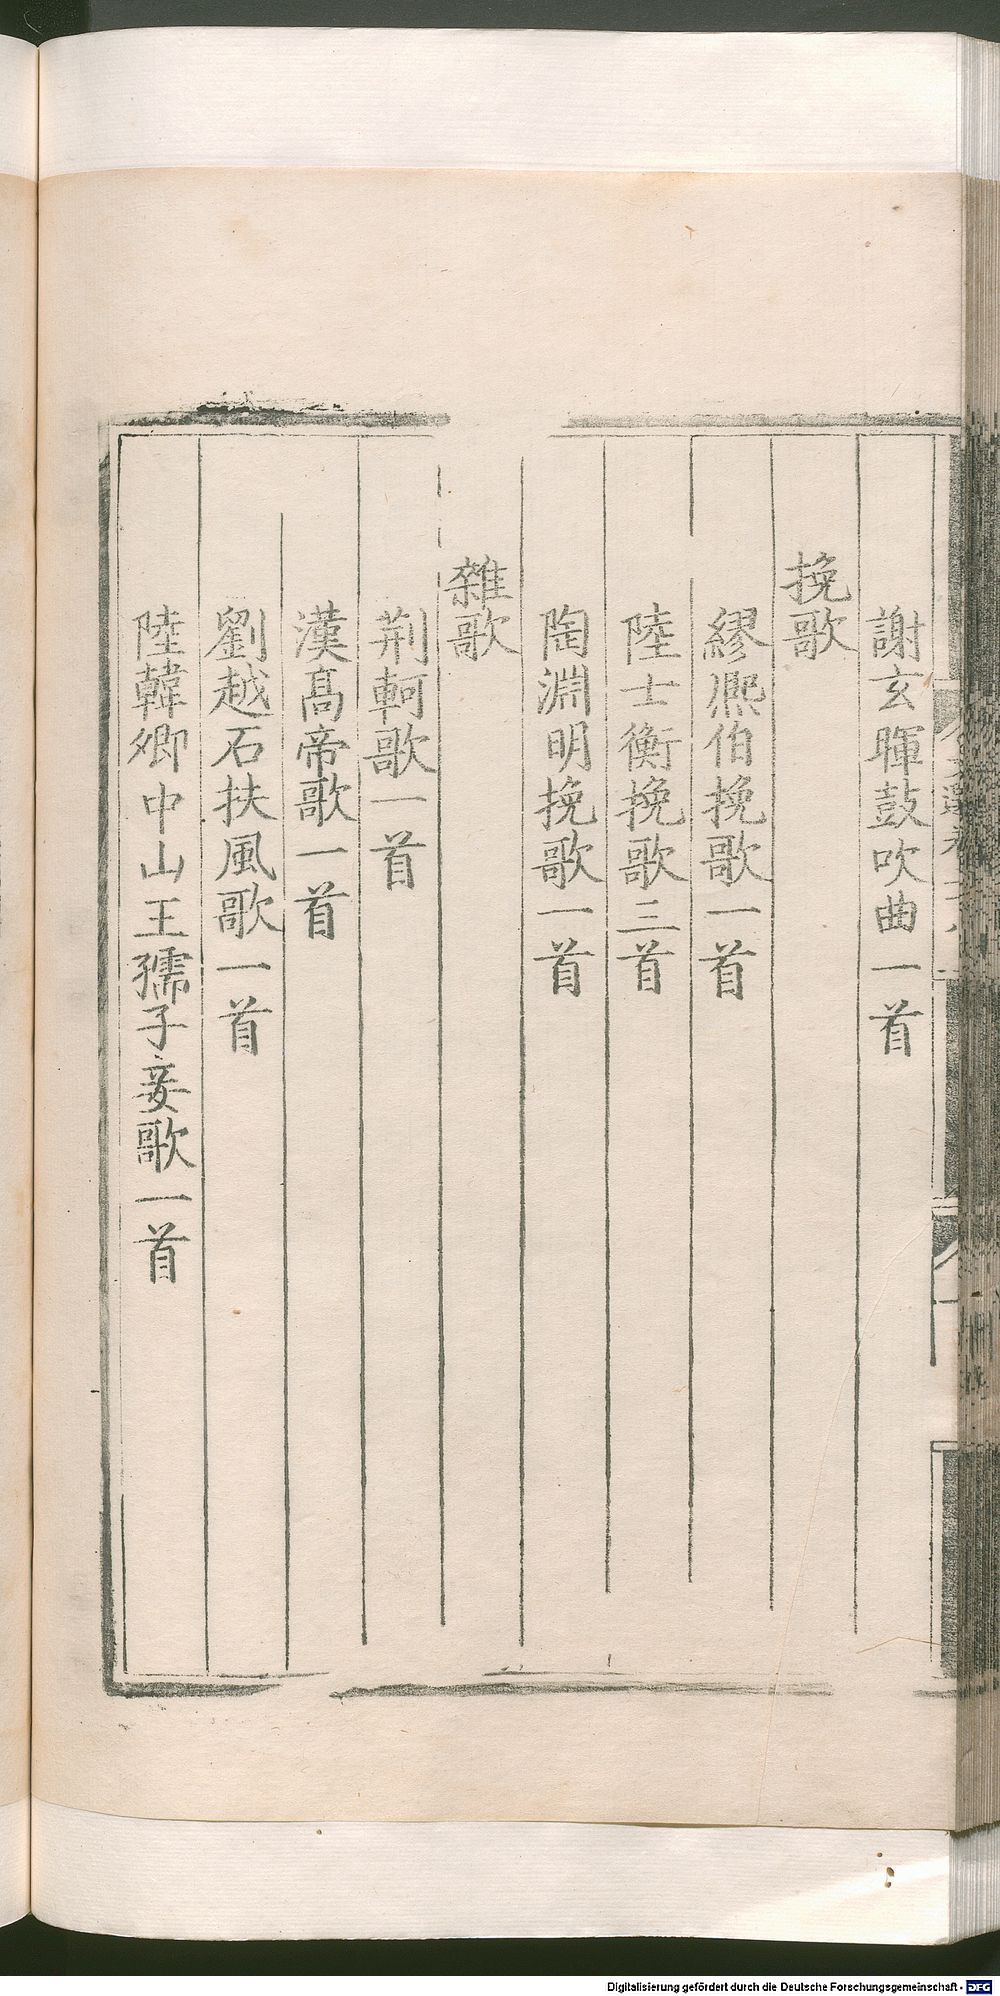 謝玄暉鼓吹曲一首
挽歌
繆熙伯挽歌一首
陸士衡挽歌三首
陶淵明挽歌一首
雜歌
荆軻歌一首
漢髙帝歌一首
劉越石扶風歌一首
陸韓卿中山王孺子妾歌一首
Digitalisierung gefördert durch die Deutsche Forschungsgemeinschaft - DFG